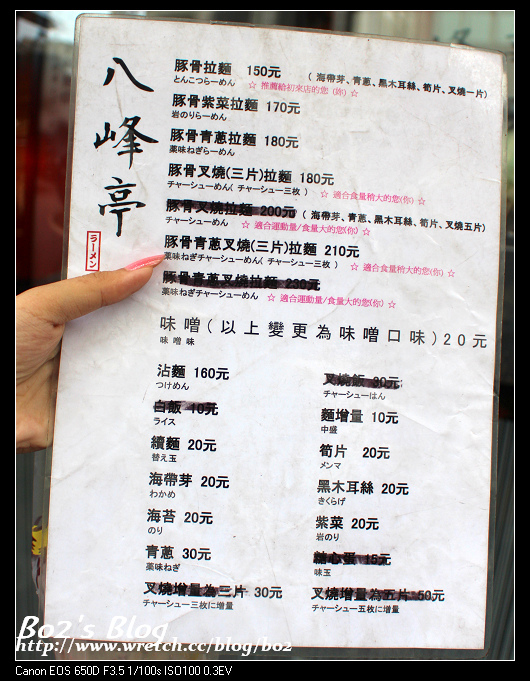 八峰亭
ラーメン
豚骨拉麵 150元 (海帶芽、青蔥、黑木耳絲、筍片、叉燒一片)
とんこつらーめん ☆ 推薦給初來店的您(妳) ☆
豚骨紫菜拉麵 170元
岩のりらーめん
豚骨青蔥拉麵 180元
薬味ねぎらーめん
豚骨叉燒(三片)拉麵 180元
チャーシューめん(チャーシュー三枚) ☆ 適合食量稍大的您(你) ☆
豚骨叉燒拉麵 200元 (海帶芽、青蔥、黑木耳絲、筍片、叉燒五片)
チャーシューめん ☆ 適合運動量/食量大的您(你) ☆
豚骨青蔥叉燒(三片)拉麵 210元
薬味ねぎチャーシューめん(チャーシュー三枚) ☆ 適合食量稍大的您(你) ☆
豚骨青蔥叉燒拉麵 230元
薬味ねぎチャーシューめん ☆ 適合運動量/食量大的您(你) ☆
味噌(以上變更為味噌口味)20元
味噌味
沾麵 160元
つけめん
叉燒飯 30元
チャーシューはん
白飯 10元
ライス
麵增量 10元
中盛
續麵 20元
替え玉
筍片 20元
メンマ
海帶芽 20元
わかめ
黑木耳絲 20元
きくらげ
海苔 20元
のり
紫菜 20元
岩のり
青蔥 30元
薬味ねぎ
糖心蛋 15元
味玉
叉燒增量為三片 30元
チャーシュー三枚に増量
叉燒增量為五片 50元
チャーシュー五枚に増量
Bo2's Blog
http://www.wretch.cc/blog/bo2
Canon EOS 650D F3.5 1/100s ISO100 0.3EV